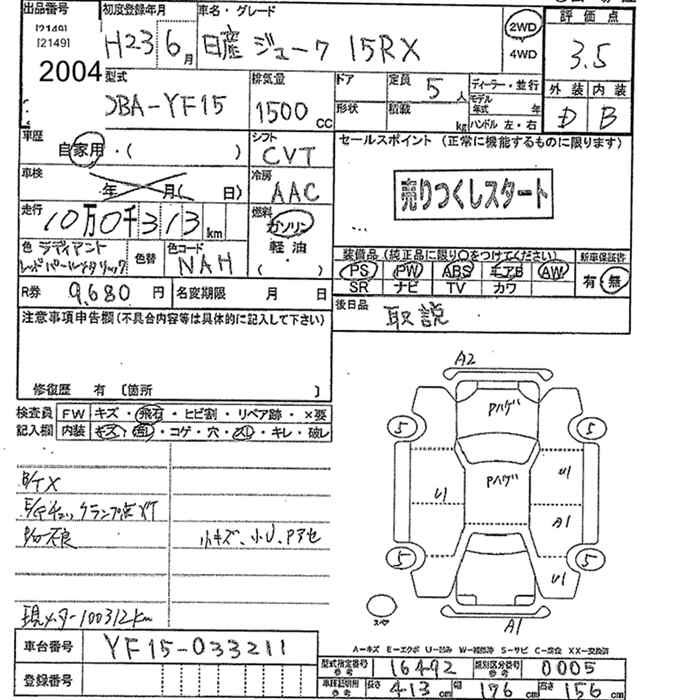 出品番号 初度登録年月 車名・グレード 評価点
[2149]
[2149]
2004
H23年 6月 日産 ジューク 15RX
2WD
4WD
3.5
型式 排気量 ドア 定員 5人 ディーラー・並行 外装 内装
DBA-YF15 1500cc 形状 積載 kg モデル年式 年 D B
ハンドル 左・右
車歴 シフト セールスポイント (正常に機能するものに限ります)
自家用・( ) CVT
車検 冷房
年 月( 日) AAC
売りつくしスタート
走行 燃料
10万0千313km ガソリン
軽油
( )
色 ラディアント
レッドパールメタリック
色替 色コード
NAH
装備品 (純正品に限り○をつけてください) 新車保証書
PS PW ABS エアB AW 有・無
SR ナビ TV カワ
R券 9,680円 名変期限 月 日
後日品 取説
注意事項申告欄(不具合内容等は具体的に記入して下さい)
修復歴 有 〔箇所 〕
検査員 FW キズ・飛石・ヒビ割・リペア跡・×要
記入欄 内装 キズ・コゲ・穴・スレ・キレ・破レ
A2
Pハゲ
5 5
Pハゲ
U1 U1
A1
5 5
U1
スペア
A1
B/T X
E/Gチェックランプ点灯
不良
小キズ、小U、Pアセ
現メーター100312km
車台番号 YF15-033211
登録番号
A-キズ E-エクボ U-凹み W-補修跡 S-サビ C-腐食 XX-交換済
型式指定番号 参考 16492 類別区分番号 参考 0005
車検証明用 参考 長さ 413cm 幅 176cm 高さ 156cm